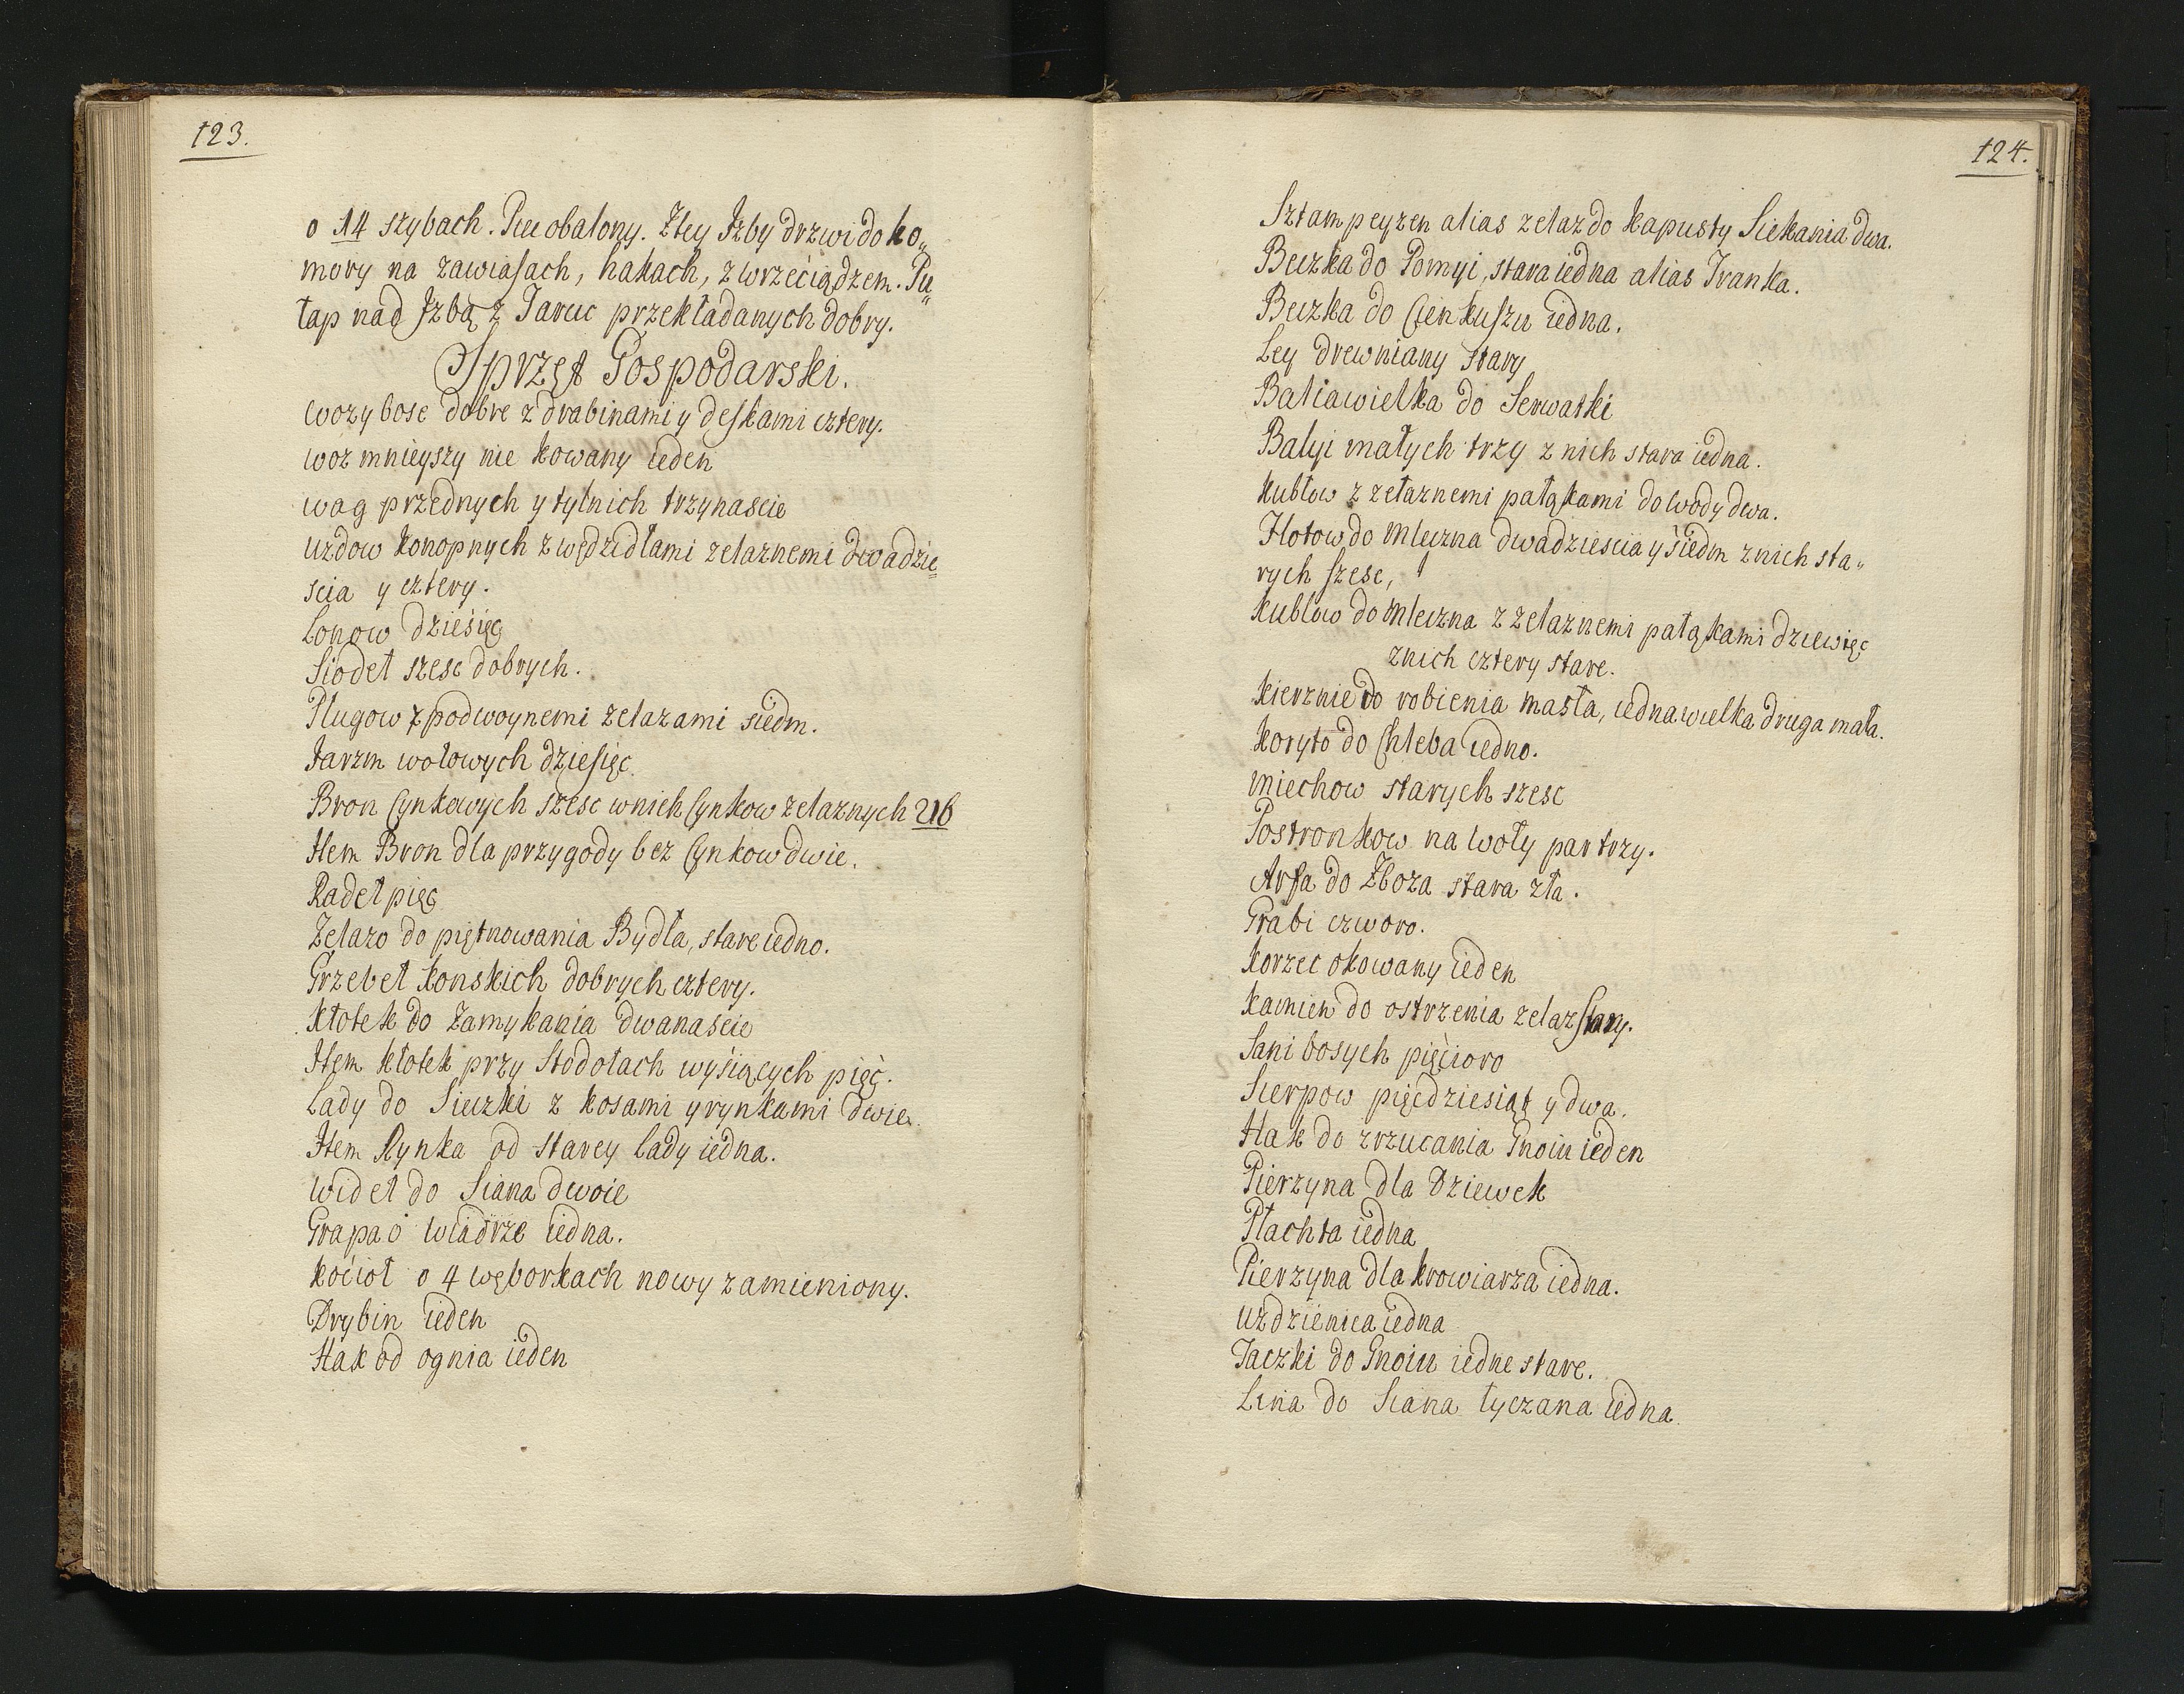 123.
o 14 szybach. Piec obalony. Z tey Izby drzwi do ko„
mory na zawiasach, hakach, z wrzeciądzem. Pu„
łap nad Izbą z Tarcic przekładanych dobry.
Sprzęt Gospodarski.
Wozy bose dobre z drabinami y deskami cztery.
Woz mnieyszy nie kowany ieden
Wag przednych y tylnich trzynascie
Uzdow konopnych z wędzidłami zelaznemi dwadzie„
scia y cztery.
Lonow dziesięc
Siodeł szesc dobrych.
Pługow z podwoynemi zelazami siedm.
Jarzm wołowych dziesięc.
Bron Cynkowych szesc w nich Cynkow zelaznych 216
Item Bron dla przygody bez Cynkow dwie.
Radeł pięc
Zelazo do piętnowania Bydła, stare iedno.
Grzebeł konskich dobrych cztery.
Kłotek do Zamykania dwanascie
Item Kłotek przy Stodołach wyśiących pięc.
Lady do Sieczki z kosami y rynkami dwie.
Item Rynka od starey Lady iedna.
Wideł do Siana dwoie
Grapa o Wiadrze iedna.
Kocioł o 4 węborkach nowy zamieniony.
Drybin ieden
Hak od ognia ieden
124.
Sztampeyzen alias zelaz do kapusty Siekania dwa.
Beczka do Pomyi, stara iedna alias Tranka.
Beczka do Cienkuszu iedna.
Ley drewniany stary
Balia wielka do Serwatki
Balyi małych trzy z nich stara iedna.
Kubłow z zelaznemi pałąkami do Wody dwa.
Flotow do Mleczna dwadziescia y siedm z nich sta„
rych szesc,
Kublow do Mleczna z zelaznemi pałąkami dziewięc
z nich cztery stare.
Kierznie do robienia Masła, iedna wielka druga mała.
Koryto do Chleba iedno.
Miechow starych szesc
Postronkow na Woły par trzy.
Arfa do Zboza stara zła.
Grabi czworo.
Korzec okowany ieden
Kamien do ostrzenia zelaz stary.
Sani bosych pięcioro
Sierpow pięcdziesiąt y dwa.
Hak do zrzucania Gnoiu ieden
Pierzyna dla Dziewek
Płachta iedna
Pierzyna dla krowiarza iedna.
Uzdzienica iedna
Taczki do Gnoiu iedne stare.
Lina do Siana łyczana iedna.